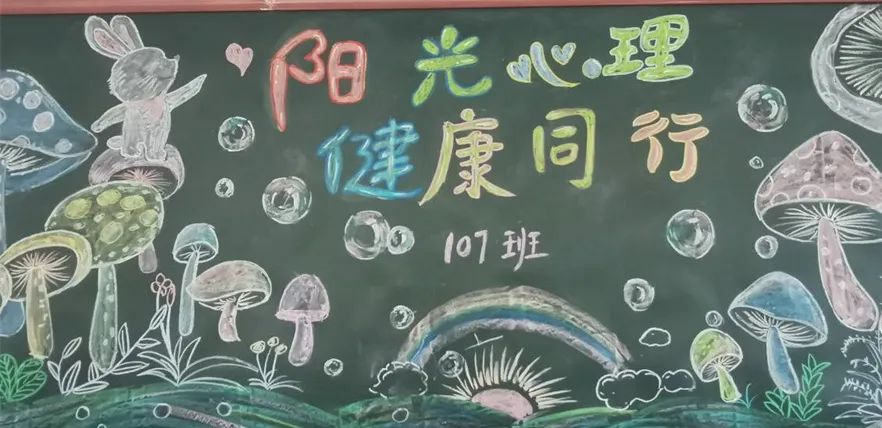 阳光心理
健康同行
107班